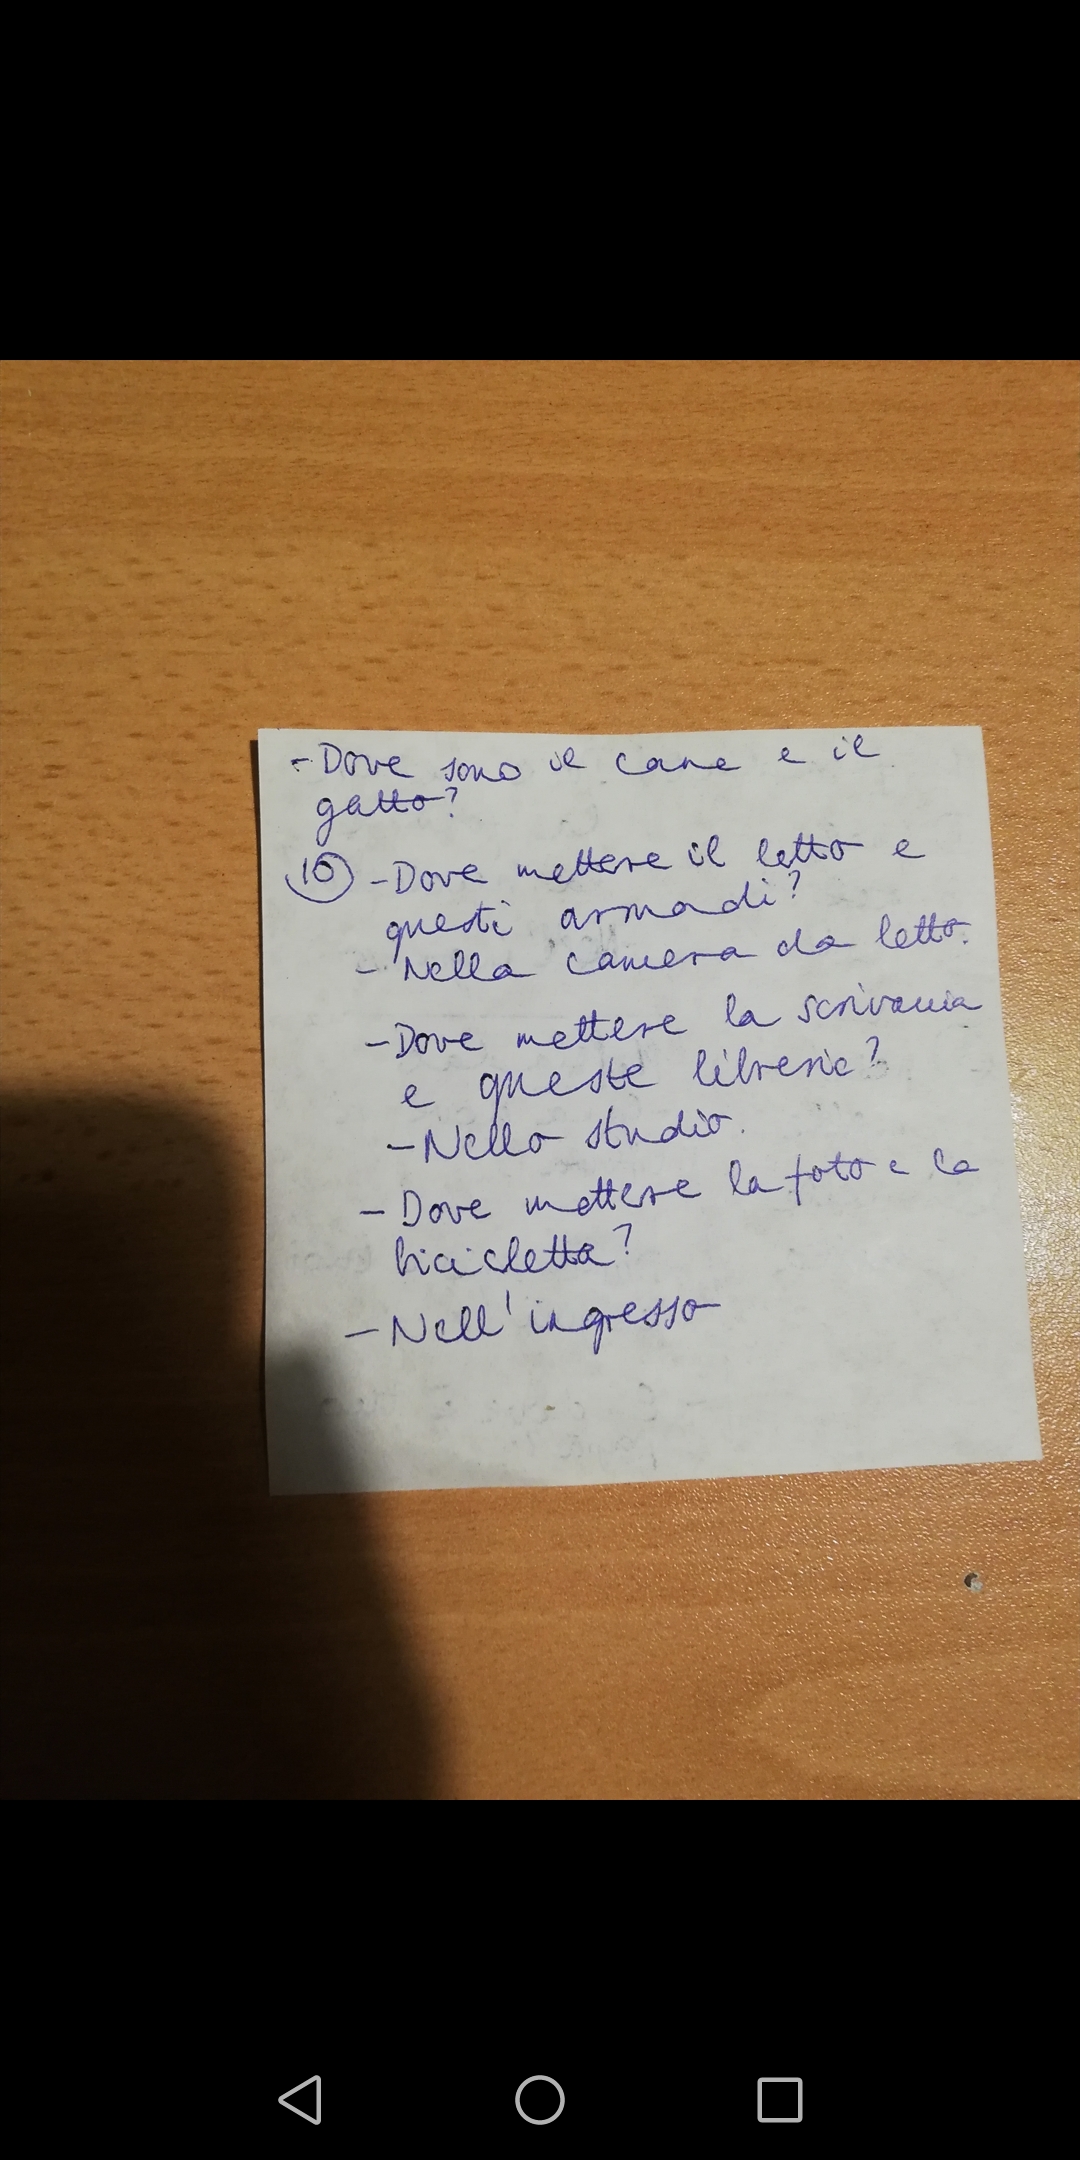 - Dove sono il cane e il
gatto?
10 - Dove mettere il letto e
questi armadi?
- Nella camera da letto.
- Dove mettere la scrivania
e queste librerie?
- Nello studio.
- Dove mettere la foto e la
bicicletta?
- Nell'ingresso